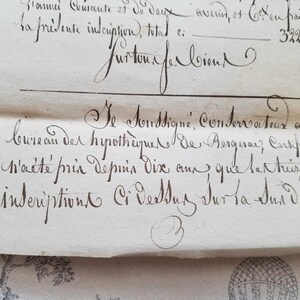 l'année Courante et de deux avenir, et Cx en fra
la présente inscription, total c: 322
Sur tous ses biens
Je Soussigné, Conservateur a
bureau des hipothèques de Bergerac, Certif
n'a été pris depuis dix ans, que les trois
inscriptions Ci dessus sur la Sus d